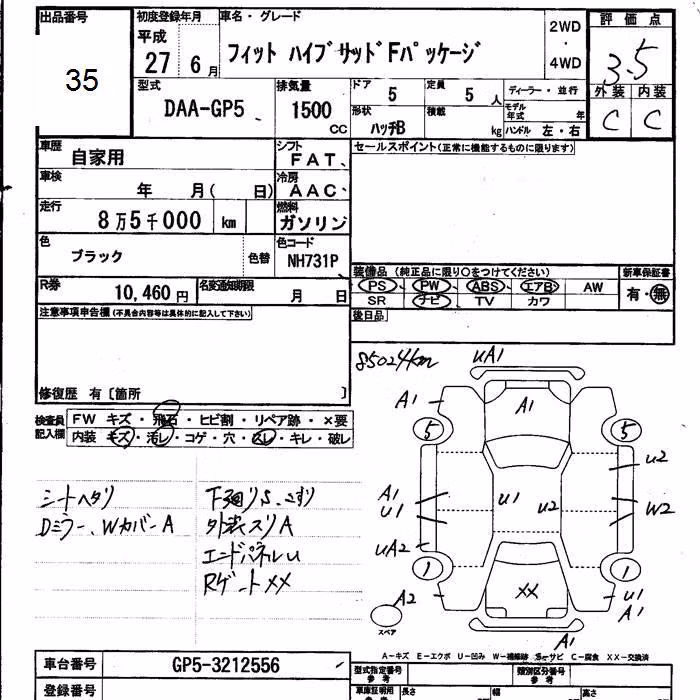 出品番号 初度登録年月 車名・グレード 評価点
35
平成 27 6月
フィット ハイブサッドFパッケージ
2WD・4WD
3.5
型式 DAA-GP5
排気量 1500 CC
ドア 5
定員 5人
形状 ハッチB
積載 kg
ディーラー・並行
モデル年式 年
ハンドル 左・右
外装 内装
C C
車歴 自家用
シフト FAT
セールスポイント(正常に機能するものに限ります)
車検 年 月( 日)
冷房 AAC
走行 8万5千000 km
燃料 ガソリン
色 ブラック 色替
色コード NH731P
装備品 (純正品に限り○をつけてください)
新車保証書
PS PW ABS エアB AW
有・無
SR ナビ TV カワ
R券 10,460円
名変通知期限 月 日
後日品
注意事項申告欄(不具合内容等は具体的に記入して下さい)
修復歴 有 [箇所 ]
85024km
検査員記入欄
FW キズ・飛石・ヒビ割・リペア跡・×要
内装 キズ・汚レ・コゲ・穴・スレ・キレ・破レ
シートヘタリ
Dミラー、Wカバー A
下廻りS、こすり
外装スリA
エンドパネルU
Rゲート XX
UA1
A1
A1
5 5
U2
A1
U1
U1
U2
W2
UA2
1 1
XX
A2
スペア
U1
A1
A1
A-キズ E-エクボ U-凹み W-補修跡 S-サビ C-腐食 XX-交換済
車台番号 GP5-3212556
登録番号
型式指定番号 参考
類別区分番号 参考
車庫証明用 参考
長さ 幅 高さ